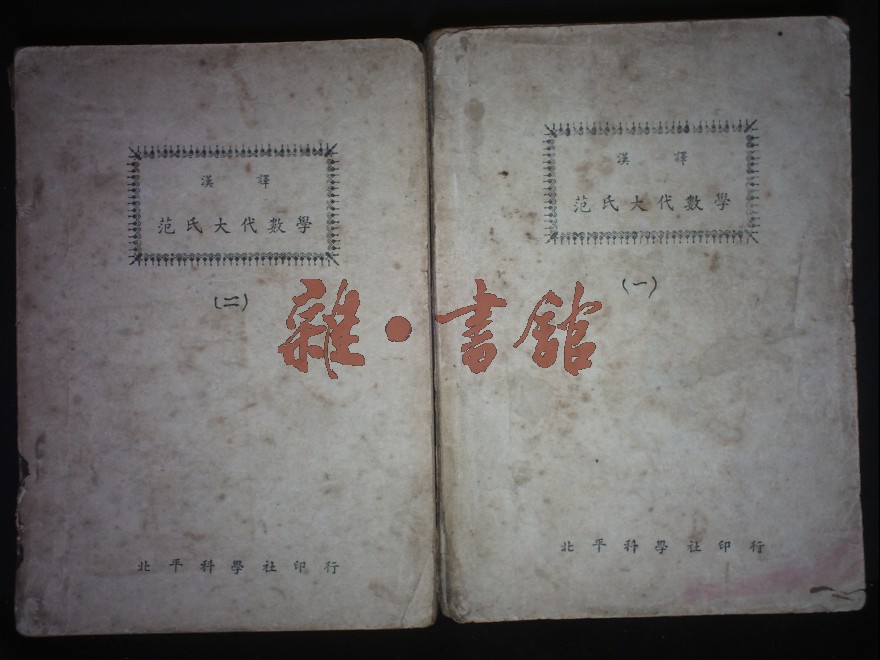 漢 譯
范氏大代數學
(二)
北平科學社印行
漢 譯
范氏大代數學
(一)
北平科學社印行
雜·書館